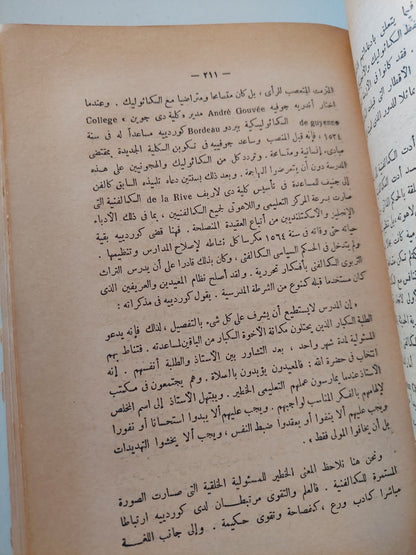 — ٢١١ —
المتزمت المتعصب للرأى، بل كان متسامحا ومتراضيا مع الكاثوليك. وعندما
إختار أندريه جوفيه André Gouvée مدير «كلية دى جوين» College
de guyenne الكاثوليسكية ببردو Bordeau كوردييه مساعداً له فى سنة
١٥٣٤، فإنه قبل المنصب وساعد جوفييه فى تسكوين الكلية الجديدة بمقتضى
مبادىء إنسانية ومتسامحة. وتردد كل من الكاثوليك والهجونيين على هذه
المدرسة دون أن يتعرضوا لمهاجمة. وبعد ذلك بسنتين دعاه تلميذه السابق كالفن
إلى جنيف للمساعدة فى تأسيس كلية دى لاريف de la Rive الكالفنية التى
صارت بسرعة المركز التعليمى واللاهوتى لجميع الكالفنيين، بما فى ذلك الأدباء
الإنجليز والأسكتلنديين من أتباع العقيدة المصلحة. فهنا قضى كوردييه بقية
حياته حتى وفاته فى سنة ١٥٦٤ مكرسا كل نشاطه لإصلاح المدارس وتنظيمها.
ولم يتدخل فى الحكم السياسى الكالفنى، وبذلك كان قادرا على أن يدرس التراث
التربوى الكالفنى بأفكار تحررية. ولقد أصلح نظام المعيدين والعريفين الذى
كان مستخدما قبله كنوع من الشرطة المدرسية. يقول كوردييه فى مذكراته:
«إن المدرس لايستطيع أن يشرف على كل شىء بالتفصيل، لذلك فإنه يدعو
الطلبة الكبار الذين يحتلون مكانة الأخوة الكبار من اليافعين لمساعدته. فتناط بهم
المسئولية لمدة شهر واحد، بعد التشاور بين الأستاذ والطلبة أنفسهم. إنه
انتخاب فى حضرة الله: فالمعيدون يؤدون باليمين بالصلاة. وهم يجتمعون فى مكتب
الأستاذ عندما يمارسون عملهم التعليمى الخطير. ويبتهل الأستاذ إلى اسم المخلص
لإلهامهم بالفكر المناسب لواجبهم. ويجب عليهم ألا يبدوا استحسانا أو نفورا
ويجب عليهم ألا ينتقموا أو يفقدوا ضبط النفس، ويجب ألا يخشوا التهديدات
بل أن يخافوا المولى فقط».
ونحن هنا نلاحظ المعنى الخطير للمسئولية الخلقية التى صارت الصورة
المستمرة للكالفنية. فالعلم والتقوى مرتبطان لدى كوردييه ارتباطا
مباشرا كأدب ورع، كفصاحة وتقوى حكيمة. وإلى جانب اللغة